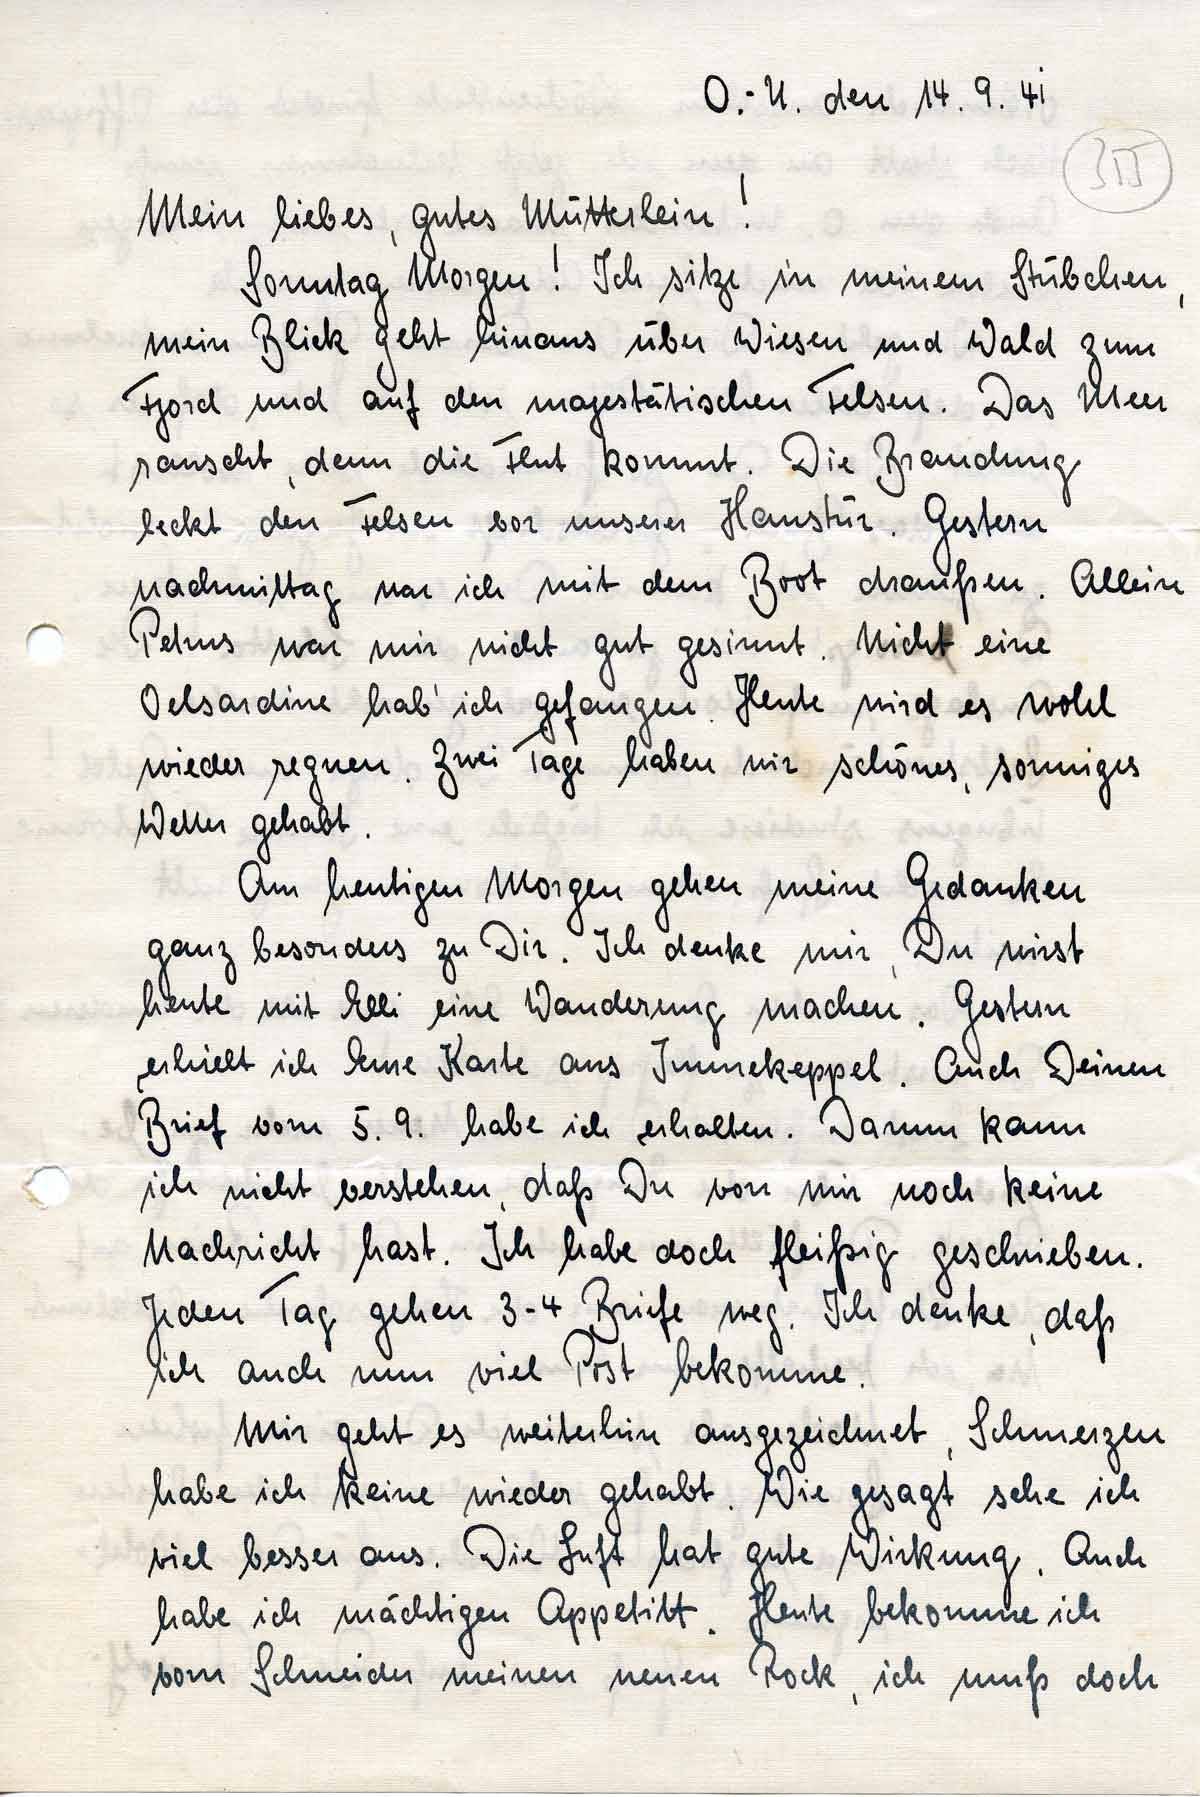 O.-U. den 14. 9. 41
Mein liebes, gutes Mütterlein!
Sonntag Morgen! Ich sitze in meinem Stübchen,
mein Blick geht hinaus über Wiesen und Wald zum
Fjord und auf den majestätischen Felsen. Das Meer
rauscht, denn die Flut kommt. Die Brandung
leckt den Felsen vor unserer Haustür. Gestern
nachmittag war ich mit dem Boot draußen. Allein
Petrus war mir nicht gut gesinnt. Nicht eine
Oelsardine hab' ich gefangen. Heute wird es wohl
wieder regnen. Zwei Tage haben wir schönes, sonniges
Wetter gehabt.
Am heutigen Morgen gehen meine Gedanken
ganz besonders zu Dir. Ich denke mir, Du wirst
heute mit Elli eine Wanderung machen. Gestern
erhielt ich Eure Karte aus Immekeppel. Auch Deinen
Brief vom 5. 9. habe ich erhalten. Darum kann
ich nicht verstehen, daß Du von mir noch keine
Nachricht hast. Ich habe doch fleißig geschrieben.
Jeden Tag gehen 3-4 Briefe weg. Ich denke, daß
ich auch nun viel Post bekomme.
Mir geht es weiterhin ausgezeichnet, Schmerzen
habe ich keine wieder gehabt. Wie gesagt sehe ich
viel besser aus. Die Luft hat gute Wirkung. Auch
habe ich mächtigen Appetitt. Heute bekomme ich
vom Schneider meinen neuen Rock, ich muß doch